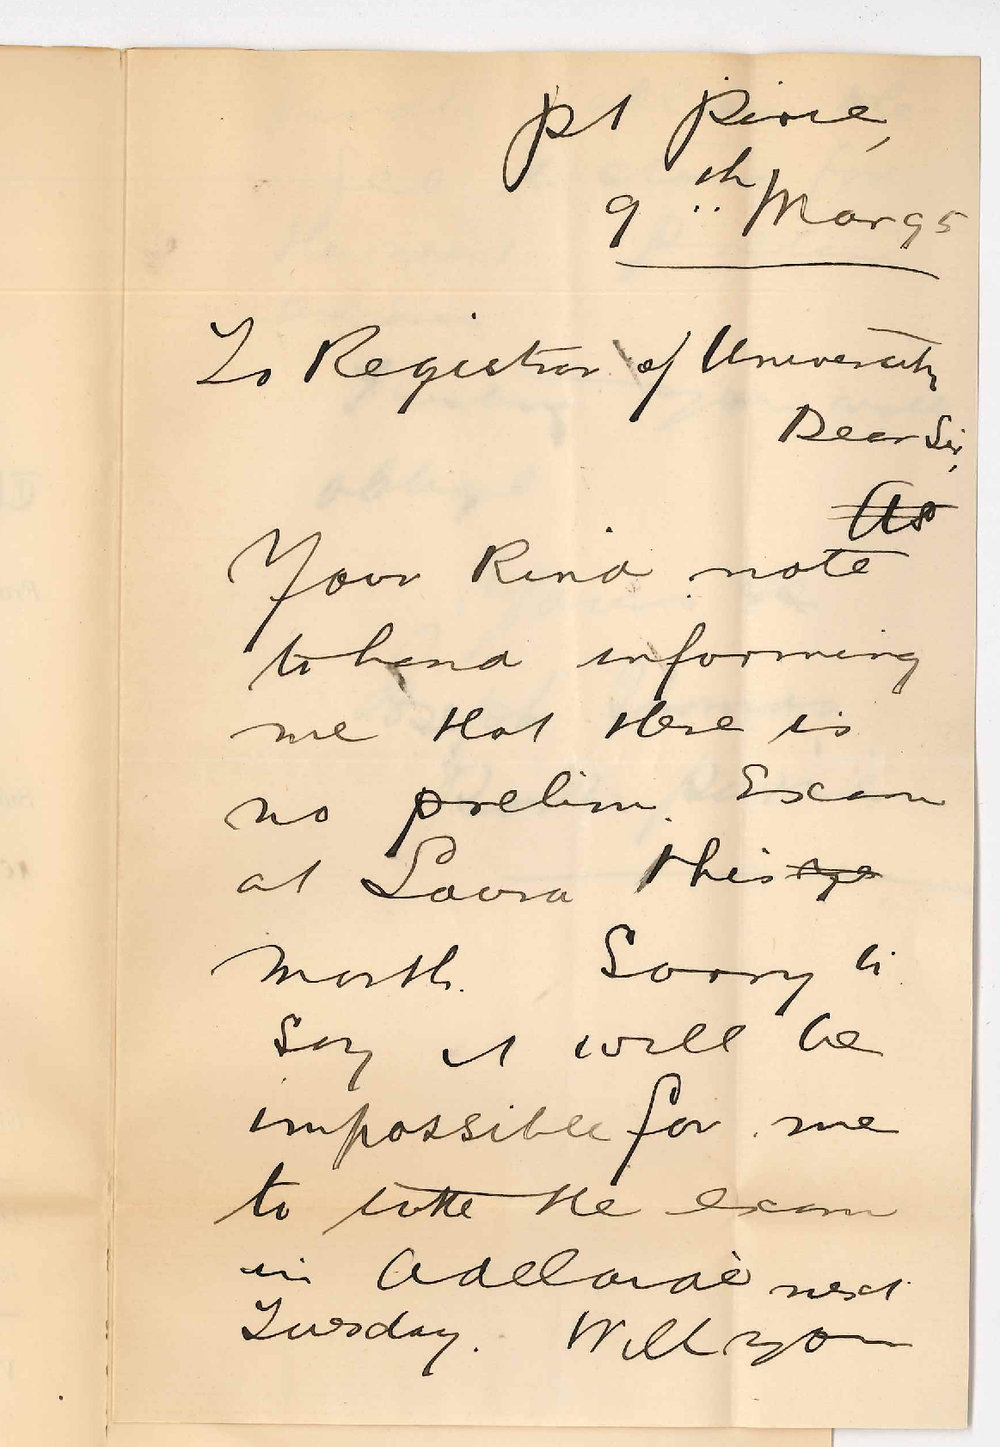 Pt Pirie,
9th Mar 95
To Registrar of University
Dear Sir,
As
Your kind note
to hand informing
me that there is
no prelim. Exam
at Laura this
month. Sorry to
say it will be
impossible for me
to the exam
in Adelaide next
Tuesday. Will you